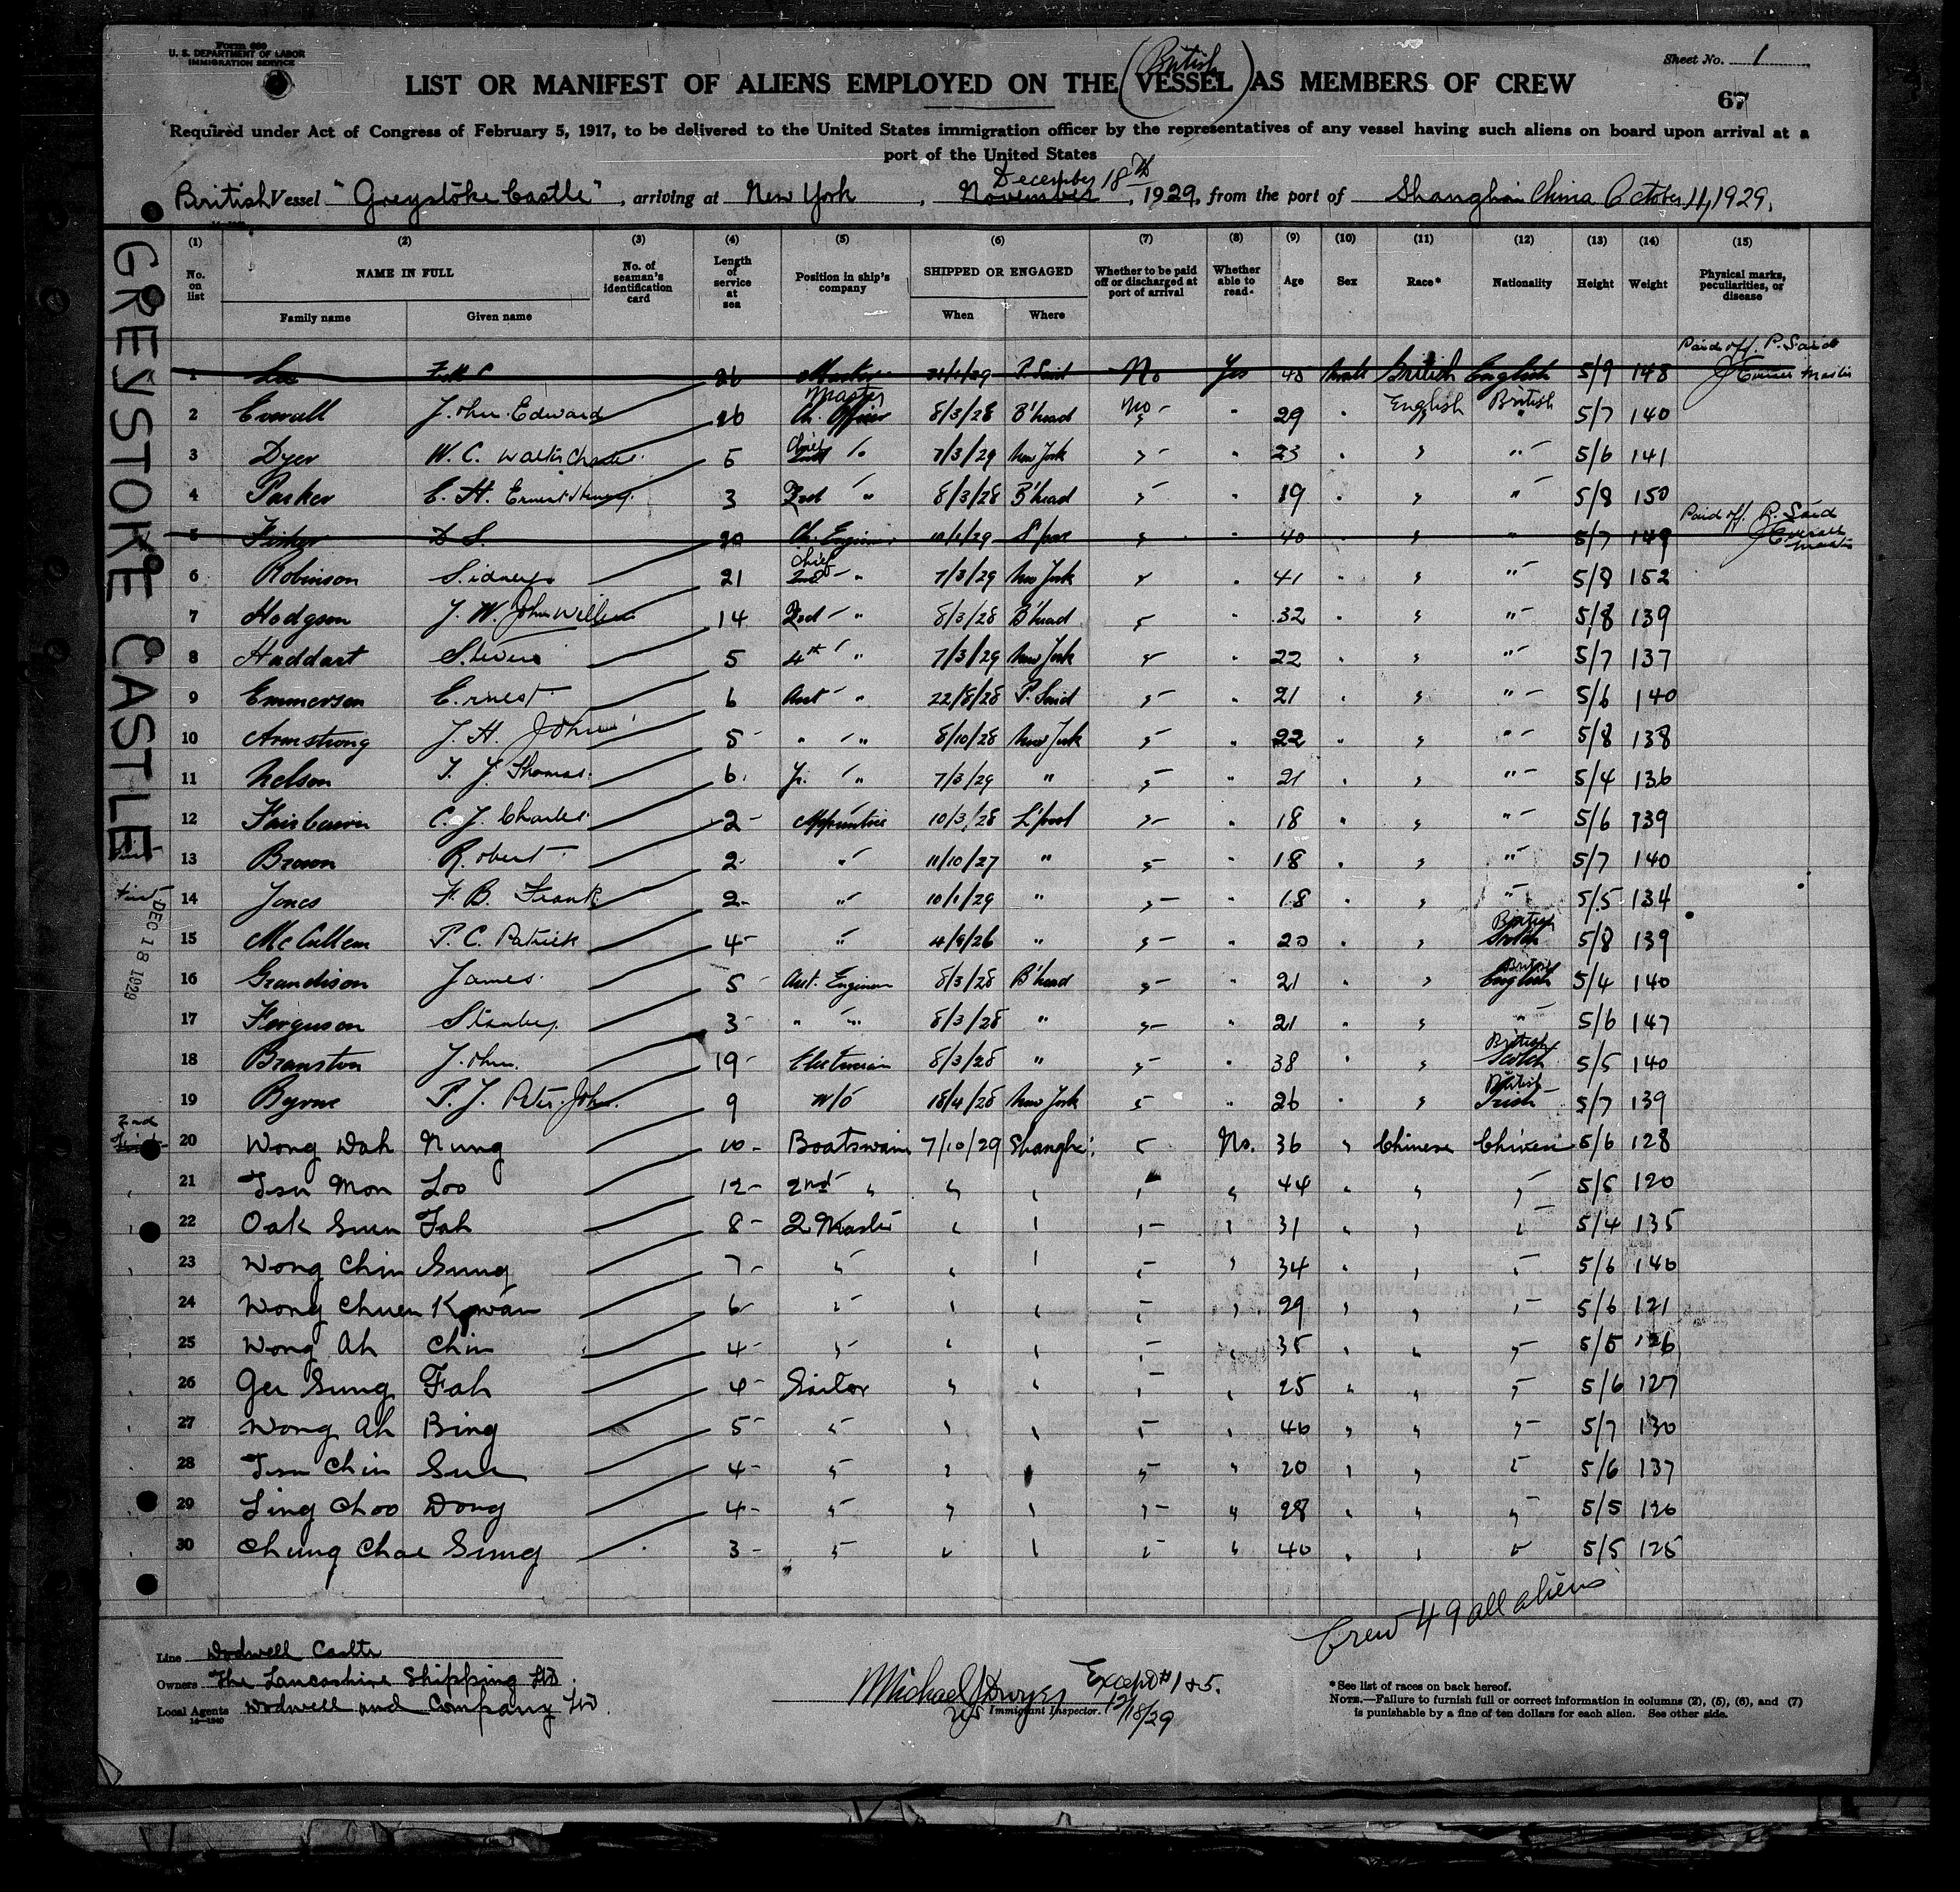 Form 680
U. S. DEPARTMENT OF LABOR
IMMIGRATION SERVICE
Sheet No. 1
LIST OR MANIFEST OF ALIENS EMPLOYED ON THE (British VESSEL) AS MEMBERS OF CREW
67
Required under Act of Congress of February 5, 1917, to be delivered to the United States immigration officer by the representatives of any vessel having such aliens on board upon arrival at a
port of the United States
British Vessel "Greystoke Castle", arriving at New York, November December 18th, 1929, from the port of Shanghai China October 11, 1929.
GREYSTOKE CASTLE
DEC 18 1929
(1) (2) (3) (4) (5) (6) (7) (8) (9) (10) (11) (12) (13) (14) (15)
No. on list NAME IN FULL No. of seaman's identification card Length of service at sea Position in ship's company SHIPPED OR ENGAGED Whether to be paid off or discharged at port of arrival Whether able to read Age Sex Race* Nationality Height Weight Physical marks, peculiarities, or disease
Family name Given name When Where
1 Lee 26 Master 31/1/29 P. Said No Yes 45 Male British English 5/9 148 Paid off. P. Said Master
2 Everall John Edward 26 Ch. Officer Master 8/3/28 B'head No " 29 " English British 5/7 140
3 Dyer W. C. Walter Charles 5 Chief " 7/3/29 New York " " 23 " " " 5/6 141
4 Parker E. H. Ernest Henry 3 2nd " 8/3/28 B'head " " 19 " " " 5/8 150
5 Fisher D S. 20 Ch. Engineer 10/1/29 " " 40 " " " 5/7 149 Paid off. P. Said J Everall Master
6 Robinson Sidney 21 2nd Chief " 7/3/29 New York " " 41 " " " 5/8 152
7 Hodgson J. W. John William 14 2nd " 8/3/28 B'head " " 32 " " " 5/8 139
8 Haddart 5 4th " 7/3/29 New York " " 22 " " " 5/7 137
9 Emmerson Ernest 6 Asst " 22/8/28 P. Said " " 21 " " " 5/6 140
10 Armstrong J. H. John 5 " " 8/10/28 New York " " 22 " " " 5/8 138
11 Nelson T. J. Thomas 6 Jr. " 7/3/29 " " " 21 " " " 5/4 136
12 Fairbairn C. J. Charles 2 Apprentice 10/3/28 L'pool " " 18 " " " 5/6 139
13 Brown Robert 2 " 11/10/27 " " " 18 " " " 5/7 140
14 Jones F. B. Frank 2 " 10/1/29 " " " 18 " " " 5/5 134
15 McCullem P. C. Patrick 4 " 4/9/26 " " " 20 " " Scotch British 5/8 139
16 Grandison James 5 Asst. Engineer 8/3/28 B'head " " 21 " " English British 5/4 140
17 Ferguson Stanley 3 " " 8/3/28 " " " 21 " " " 5/6 147
18 Branston John 19 Electrician 8/3/28 " " " 38 " " Scotch British 5/5 140
19 Byrne P. J. Peter John 9 W/O 18/4/28 New York " " 26 " " Irish British 5/7 139
2nd 20 Wong Dah Nung 10 Boatswain 7/10/29 Shanghai " No. 36 " Chinese Chinese 5/6 128
21 Tsu Mon Loo 12 2nd " " " " " 44 " " " 5/5 120
22 Oak Suen Fah 8 2 Master " " " " 31 " " " 5/4 135
23 Wong Chin Sung 7 " " " " " 34 " " " 5/6 140
24 Wong Chuen Kwan 6 " " " " " 29 " " " 5/6 121
25 Wong Ah Chin 4 " " " " " 35 " " " 5/5 126
26 Gee Sung Fah 4 Sailor " " " " 25 " " " 5/6 127
27 Wong Ah Bing 5 " " " " " 40 " " " 5/7 130
28 Tsu Chin Sue 4 " " " " " 20 " " " 5/6 137
29 Ling Choo Dong 4 " " " " " 28 " " " 5/5 126
30 Chung Chae Sung 3 " " " " " 40 " " " 5/5 125
Crew 49 all aliens
Line Dodwell Castle
Owners The Lancashire Shipping Ltd.
Local Agents Dodwell and Company Ltd.
14—1240
Michael J Dwyer Except #1 & 5.
US Immigrant Inspector. 12/18/29
*See list of races on back hereof.
NOTE.—Failure to furnish full or correct information in columns (2), (5), (6), and (7)
is punishable by a fine of ten dollars for each alien. See other side.